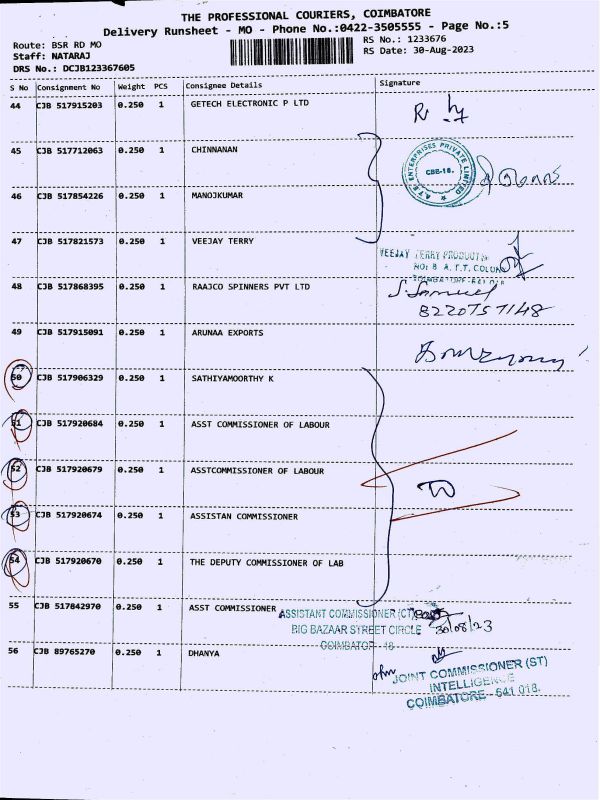 THE PROFESSIONAL COURIERS, COIMBATORE
Delivery Runsheet - MO - Phone No.:0422-3505555 - Page No.:5
Route: BSR RD MO
RS No.: 1233676
Staff: NATARAJ
RS Date: 30-Aug-2023
DRS No.: DCJB123367605
S No Consignment No Weight PCS Consignee Details Signature
44 CJB 517915203 0.250 1 GETECH ELECTRONIC P LTD
45 CJB 517712063 0.250 1 CHINNANAN
A.T.E ENTERPRISES PRIVATE LIMITED
CBE-18.
46 CJB 517854226 0.250 1 MANOJKUMAR
47 CJB 517821573 0.250 1 VEEJAY TERRY
VEEJAY TERRY PRODUCTS
NO: 8 A.T.T. COLONY
COIMBATORE-641 018
48 CJB 517868395 0.250 1 RAAJCO SPINNERS PVT LTD
S. Samuel
8220757148
49 CJB 517915091 0.250 1 ARUNAA EXPORTS
50 CJB 517906329 0.250 1 SATHIYAMOORTHY K
51 CJB 517920684 0.250 1 ASST COMMISSIONER OF LABOUR
52 CJB 517920679 0.250 1 ASSTCOMMISSIONER OF LABOUR
53 CJB 517920674 0.250 1 ASSISTAN COMMISSIONER
54 CJB 517920670 0.250 1 THE DEPUTY COMMISSIONER OF LAB
55 CJB 517842970 0.250 1 ASST COMMISSIONER
ASSISTANT COMMISSIONER (CT)
BIG BAZAAR STREET CIRCLE 30/08/23
COIMBATOR - 18
56 CJB 89765270 0.250 1 DHANYA
JOINT COMMISSIONER (ST)
INTELLIGENCE
COIMBATORE - 641 018.